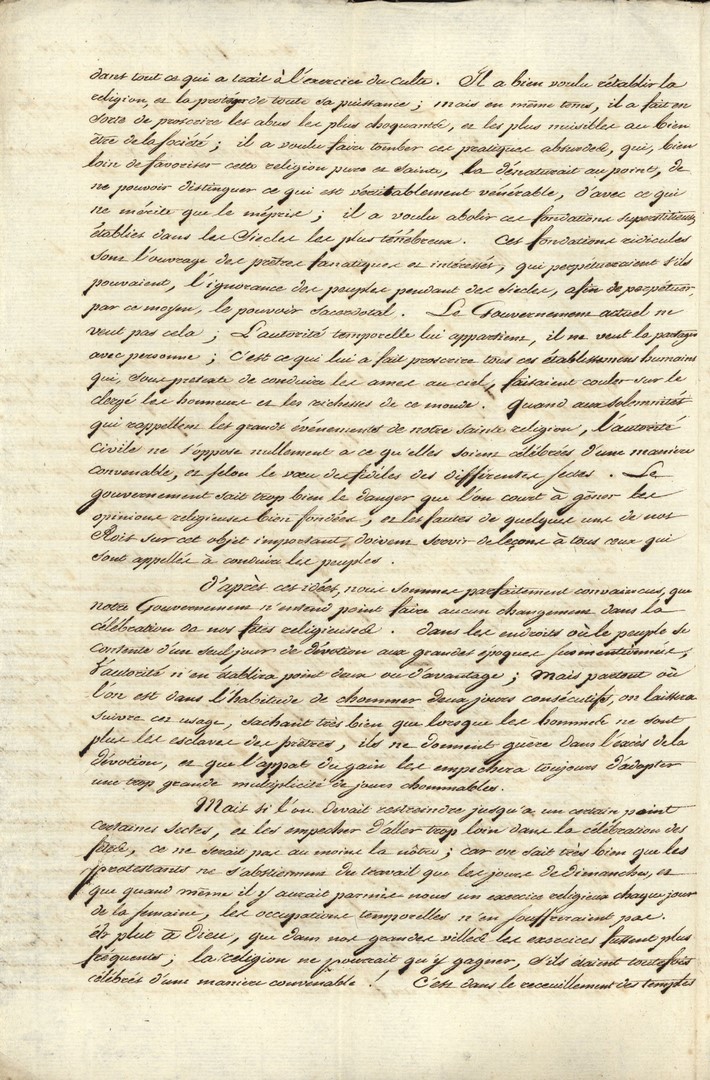 dans tout ce qui a trait à l'exercice du culte. Il a bien voulu rétablir la
religion, et la protéger de toute sa puissance ; mais en même tems, il a fait en
sorte de proscrire les abus les plus choquants, et les plus nuisibles au bien
être de la société ; il a voulu faire tomber ces pratiques absurdes, qui, bien
loin de favoriser cette religion pure et sainte, la dénaturait au point, de
ne pouvoir distinguer ce qui est véritablement vénérable, d'avec ce qui
ne mérite que le mépris ; il a voulu abolir ces fondations superstitieuses
établies dans les Siècles les plus ténébreux. Ces fondations ridicules
sont l'ouvrage des prêtres fanatiques et intéressés, qui perpétueraient s'ils
pouvaient, l'ignorance des peuples pendant des siècles, afin de perpétuer,
par ce moyen, le pouvoir sacerdotal. Le Gouvernement actuel ne
veut pas cela ; L'autorité temporelle lui appartient, il ne veut la partager
avec personne ; c'est ce qui lui a fait proscrire tous ces établissemens humains
qui, sous prétexte de conduire les ames au ciel, faisaient couler sur le
clergé les honneurs et les richesses de ce monde. Quand aux solemnités
qui rappellent les grands événements de notre sainte religion, l'autorité
civile ne s'oppose nullement a ce qu'elles soient célébrées d'une manière
convenable, et selon le vœu des fidèles des différentes sectes. Le
gouvernement sait trop bien le danger que l'on court à gêner les
opinions religieuses bien fondées, et les fautes de quelques uns de nos
Rois sur cet objet important, doivent servir de leçons à tous ceux qui
sont appellés à conduire les peuples.
D'après ces idées, nous sommes parfaitement convaincus, que
notre Gouvernement n'entend point faire aucun changement dans la
célébration de nos fêtes religieuses. Dans les endroits où le peuple se
contente d'un seul jour de dévotion aux grandes époques susmentionnées,
l'autorité n'en établira point deux ou d'avantage ; Mais partout où
l'on est dans l'habitude de chommer deux jours consécutifs, on laissera
suivre cet usage, sachant très bien que lorsque les hommes ne sont
plus les esclaves des prêtres, ils ne donnent guère dans l'excès de la
dévotion, et que l'appat du gain les empechera toujours d'adopter
une trop grande multiplicité de jours chommables.
Mais si l'on devait restreindre jusqu'à un certain point
certaines sectes, et les empecher d'aller trop loin dans la célébration des
fêtes, ce ne serait pas au moins la nôtre ; car on sait très bien que les
protestants ne s'abstiennent du travail que les jours de Dimanches, et
que quand même il y aurait parmis nous un exercice religieux chaque jour
de la semaine, les occupations temporelles n'en souffriraient pas.
Et plut à Dieu, que dans nos grandes villes les exercices fussent plus
fréquents ; la religion ne pourrait qu'y gagner, s'ils étaient toutefois
célébrés d'une manière convenable ! C'est dans le receuillement des temples